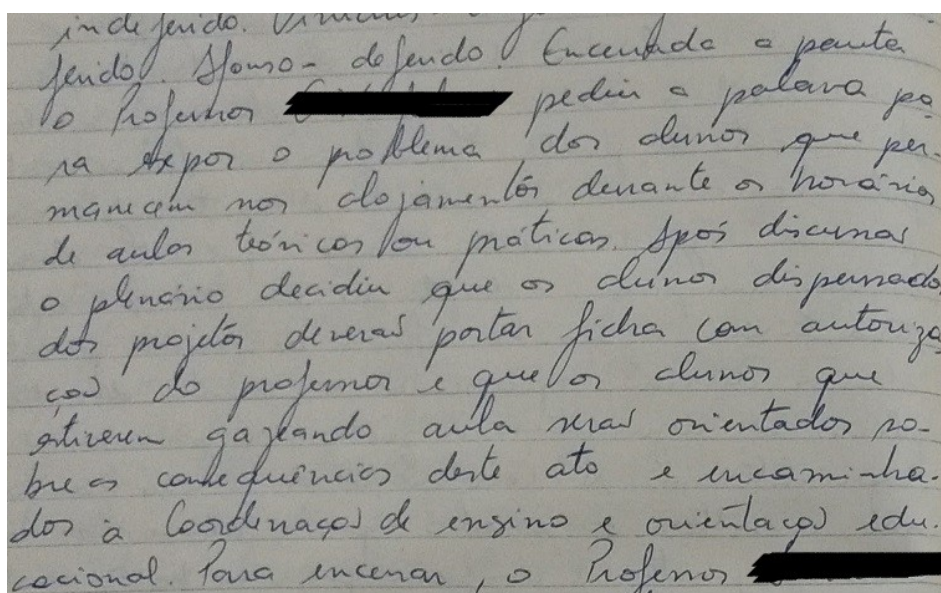 indeferido. 
ferido. Afonso - deferido. Encerrada a pauta
o Professor pediu a palavra pa-
ra expor o problema dos alunos que per-
manecem nos alojamentos durante os horários
de aulas teóricas ou práticas. Após discussão
o plenário decidiu que os alunos dispensados
dos projetos deverão portar ficha com autoriza
ção do professor e que os alunos que
estiverem gazeando aula serão orientados so-
bre as consequências deste ato e encaminha-
dos à Coordenação de ensino e orientação edu-
cacional. Para encerrar, o Professor